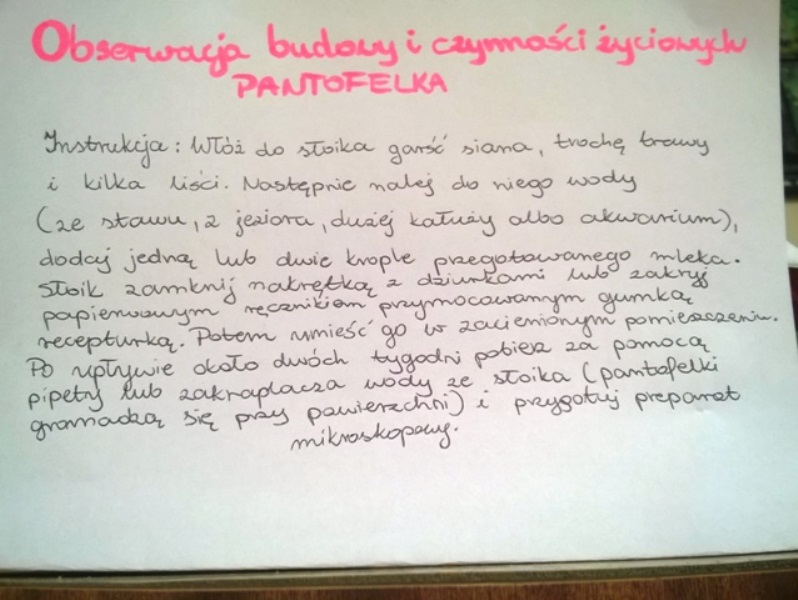 Obserwacja budowy i czynności życiowych
PANTOFELKA
Instrukcja: Włóż do słoika garść siana, trochę trawy
i kilka liści. Następnie nalej do niego wody
(ze stawu, z jeziora, dużej kałuży albo akwarium),
dodaj jedną lub dwie krople przegotowanego mleka.
Słoik zamknij nakrętką z dziurkami lub zakryj
papierowym ręcznikiem przymocowanym gumką
recepturką. Potem umieść go w zaciemionym pomieszczeniu.
Po upływie około dwóch tygodni pobierz za pomocą
pipety lub zakraplacza wody ze słoika (pantofelki
gromadzą się przy powierzchni) i przygotuj preparat
mikroskopowy.